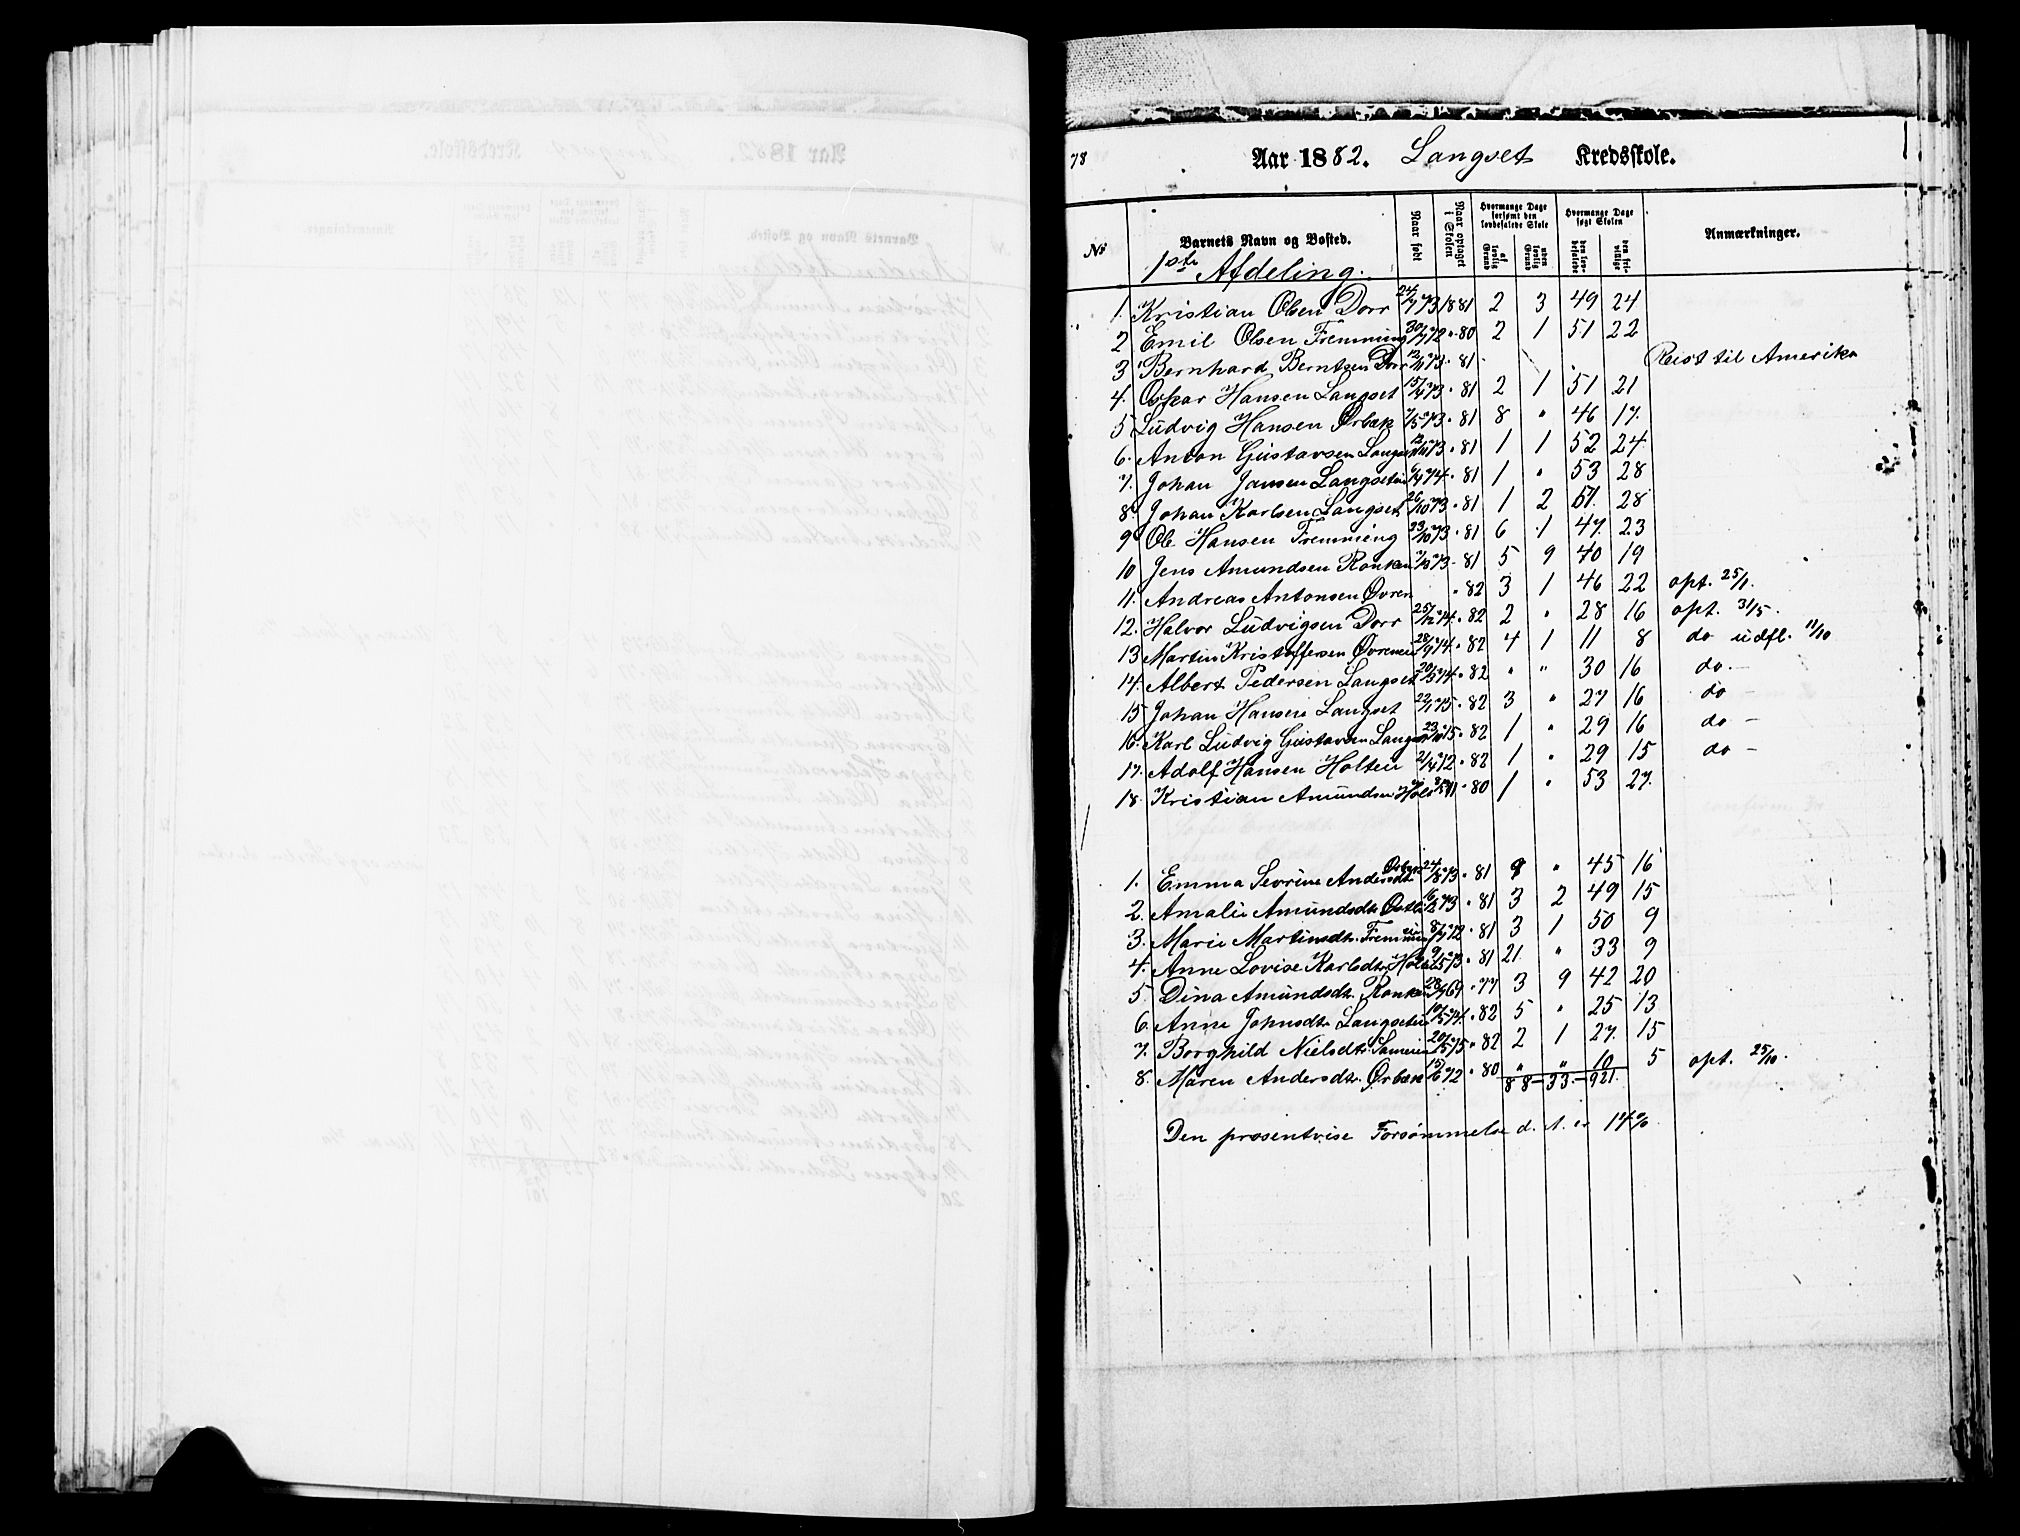 78
Aar 1882. Langset Kredsskole.
No Barnets Navn og Bosted. Naar født Naar optaget i Skolen Hvormange Dage forsømt den lovbefalede Skole af lovlig Grund uden lovlig Grund Hvormange Dage søgt Skolen den lovbefalede den frivillige Anmærkninger.
1ste Afdeling.
1. Kristian Olsen Dorr 24/7 73 1881 2 3 49 24
2 Emil Olsen Fremming 30/ 72 " 80 2 1 51 22
3 Bernhard Berntsen Dorr 12/11 73 " 81 Reist til Amerika
4. Oskar Hansen Langset 15/4 73 " 81 2 1 51 21
5 Ludvig Hansen Ørbæk 7/5 73 " 81 8 " 46 17.
6. Anton Gustavsen 73 " 81 1 1 52 24.
7. Johan Jansen Langseteie 74 " 81 1 " 53 28
8. Johan Karlsen Langset 26/10 73 " 81 1 2 51. 28
9 Ole Hansen Fremming 23/10 73 " 81 6 1 47. 23
10 Jens Amundsen 73 " 81 5 9 40 19
11. Andreas Antonsen " 82 3 1 46 22 opt. 25/1.
12. Halvor Ludvigsen Dorr 25/12 74 " 82 2 " 28 16 opt. 3/5.
13 Martin Kristoffersen 28/9 74 " 82 4 1 11 8 do udfl. 11/10
14. Albert Pedersen Langset 20/5 74 " 82 " " 30 16 do. —
15 Johan Hansen Langset 22/1 75 " 82 3 " 27 16 do —
16. Karl Ludvig Gustavsen 75 " 82 1 " 29 16 do —
17. Adolf Hansen Holteie 2/4 72 " 82 1 " 29 15 do —
18. Kristian Amundsen 71 " 80 1 " 53 27.
1. Emma Sevrine Andersdt. Ørbæk 24/8 73 " 81 9 " 45 16
2. Amalie Amundsdt. 16/12 73 " 81 3 2 49 15
3. Marie Martinsdt. 72 " 81 3 1 50 9
4. Anne Lovise Karlsdt. 9/5 73 " 81 21. " 33 9
5. Dina Amundsdt. 69 " 77 3 9 42 20
6. Anne Johnsdt. Langseteie 74. " 82 5 " 25 13
7. Borghild Nielsdt. 75 " 82 2 1 27. 15
8. Maren Andersdt. Ørbæk 15/6 72 " 80 " " 10 5 opt. 25/10.
88 — 33. — 921.
Den prosentvise Forsømmelse d. A. er 14%